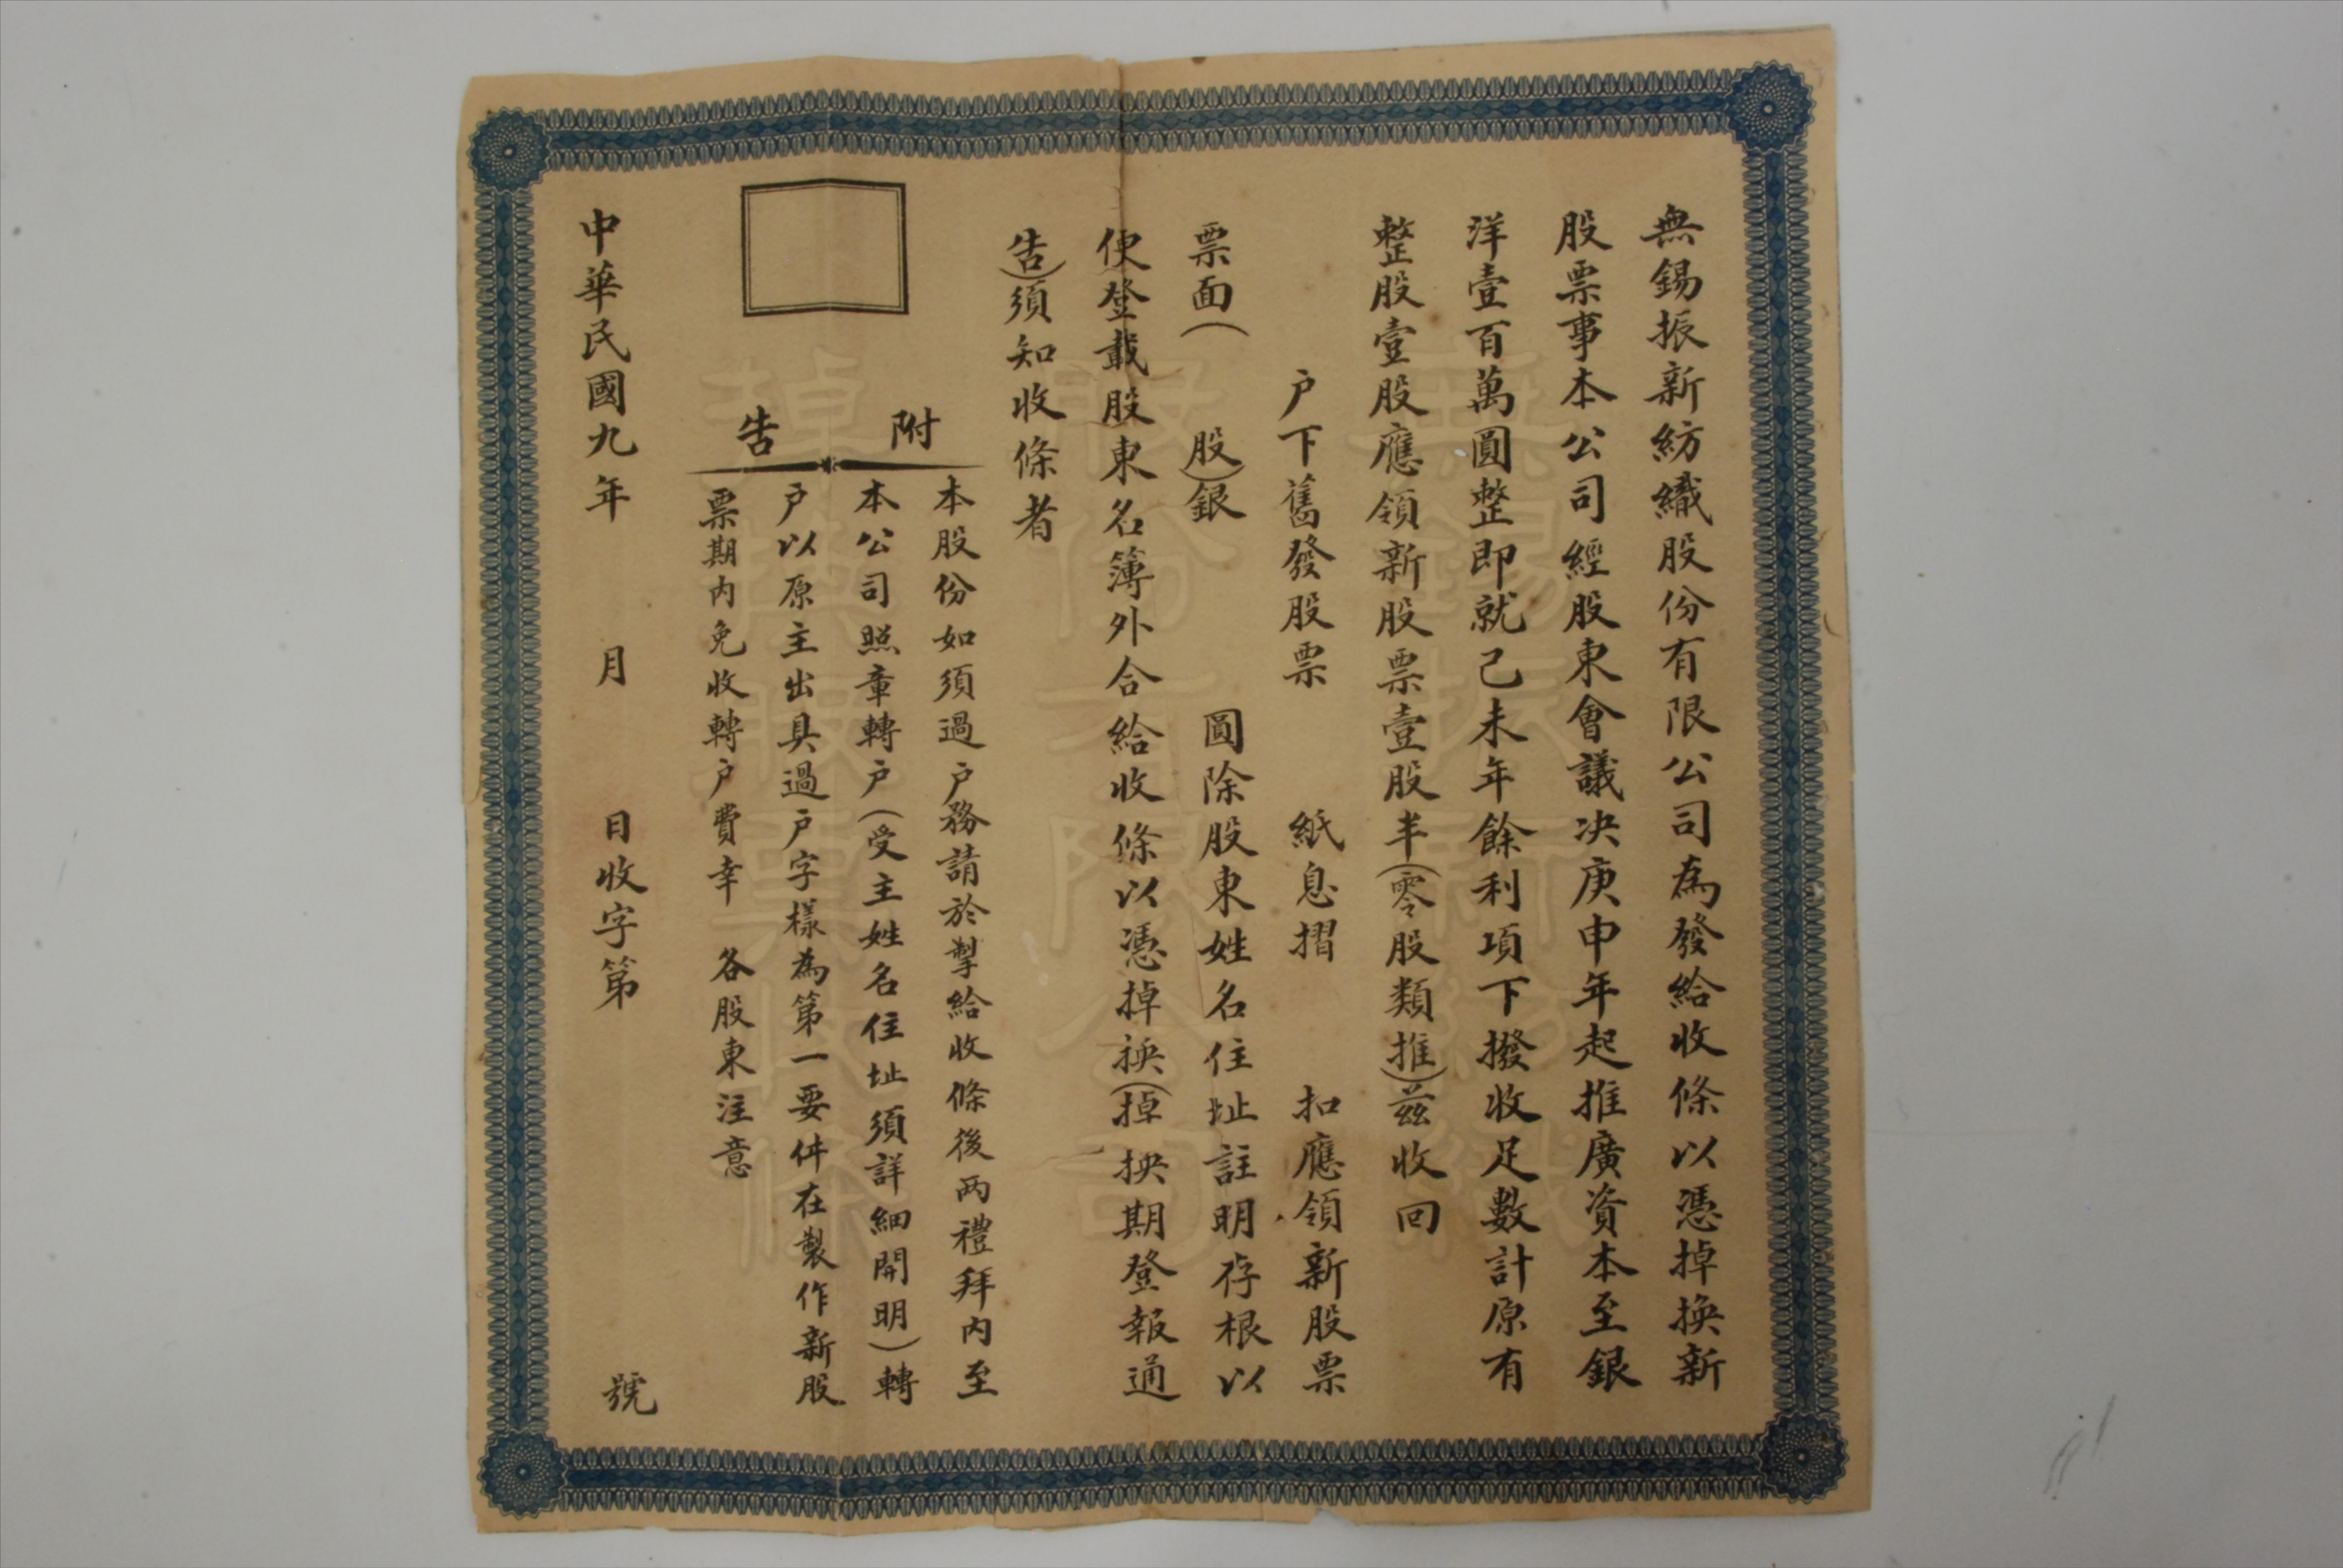 無錫振新紡織股份有限公司為發給收條以憑掉換新
股票事本公司經股東會議決庚申年起推廣資本至銀
洋壹百萬圓整即就己未年餘利項下撥收足數計原有
整股壹股應領新股票壹股半(零股類推)茲收回
户下舊發股票 紙息摺 扣應領新股票
票面( 股)銀 圓除股東姓名住址註明存根以
便登載股東名簿外合給收條以憑掉換(掉换期登報通
告)須知收條者
附告
本股份如須過户務請於掣給收條後两禮拜内至
本公司照章轉户(受主姓名住址須詳細開明)轉
户以原主出具過户字樣為第一要件在製作新股
票期内免收轉户費幸 各股東注意
中華民國九年 月 日收字第 號
無錫振新紡織
股份有限公司
掉換股票收條